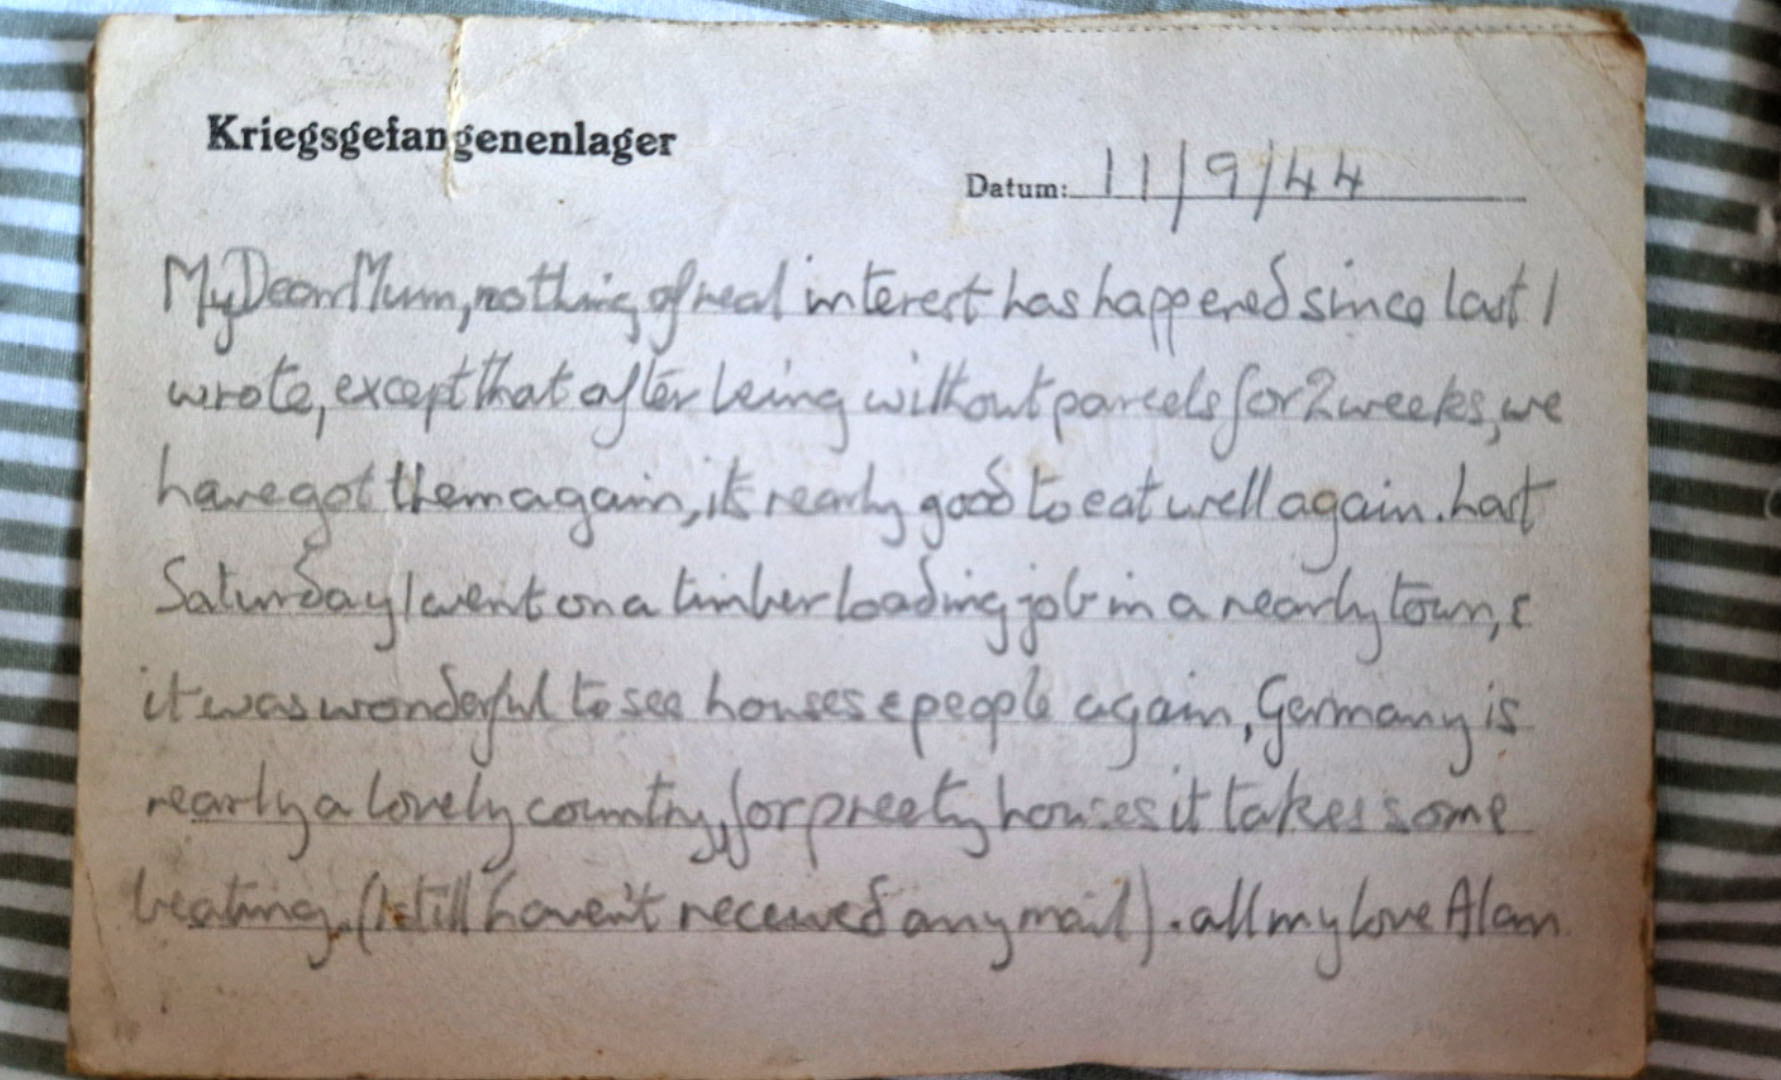 Kriegsgefangenenlager
Datum: 11/9/44
My Dear Mum, nothing of real interest has happened since last I
wrote, except that after being without parcels for 2 weeks, we
have got them again, it's really good to eat well again. Last
Saturday I went on a timber loading job in a nearby town, &
it was wonderful to see houses & people again, Germany is
really a lovely country, for preety houses it takes some
beating. (I still haven't received any mail). all my love Alan.